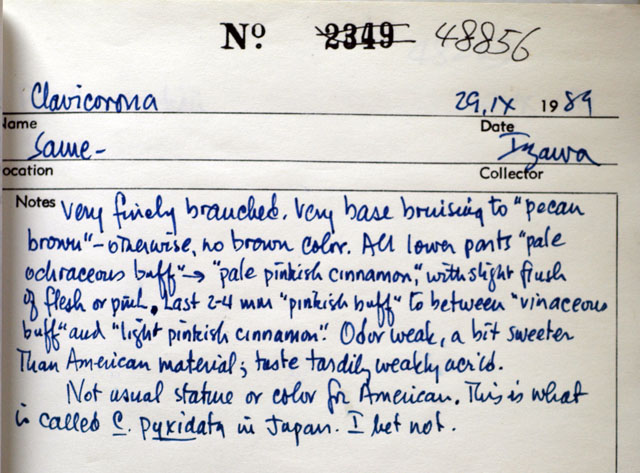 Nº 2349 48856
Clavicorona 29.IX 1989
Name Date
Same- Izawa
ocation Collector
Notes Very finely branched. Very base bruising to "pecan
brown" - otherwise, no brown color. All lower parts "pale
ochraceous buff" → "pale pinkish cinnamon," with slight flush
of flesh or pink. Last 2-4 mm "pinkish buff" to between "vinaceous
buff" and "light pinkish cinnamon". Odor weak, a bit sweeter
than American material; taste tardily weakly acrid.
Not usual stature or color for American. This is what
is called C. pyxidata in Japan. I bet not.